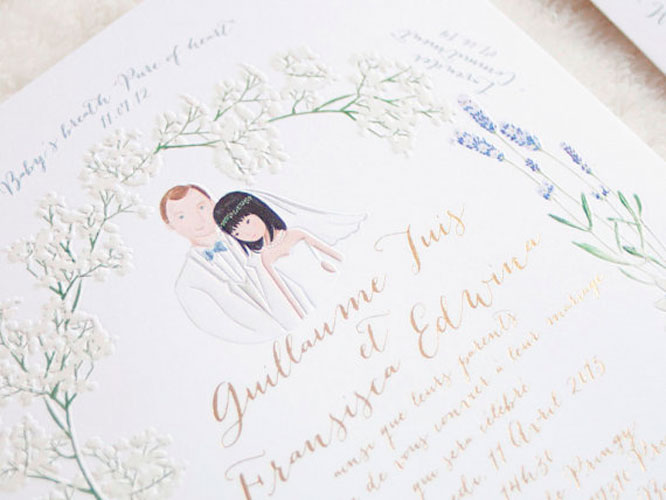 Baby's breath "Pure of heart"
11.07.12
Lavender
Guillaume Juis
et
Fransisca Edwina
ainsi que leurs parents
de vous convier à leur mariage
qui sera célébré
11 Avril 2015
14h30
Pringy